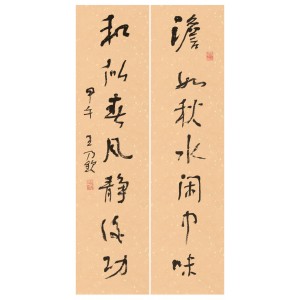 澹如秋水闲中味
和似春风静後功
甲午 王乃钦